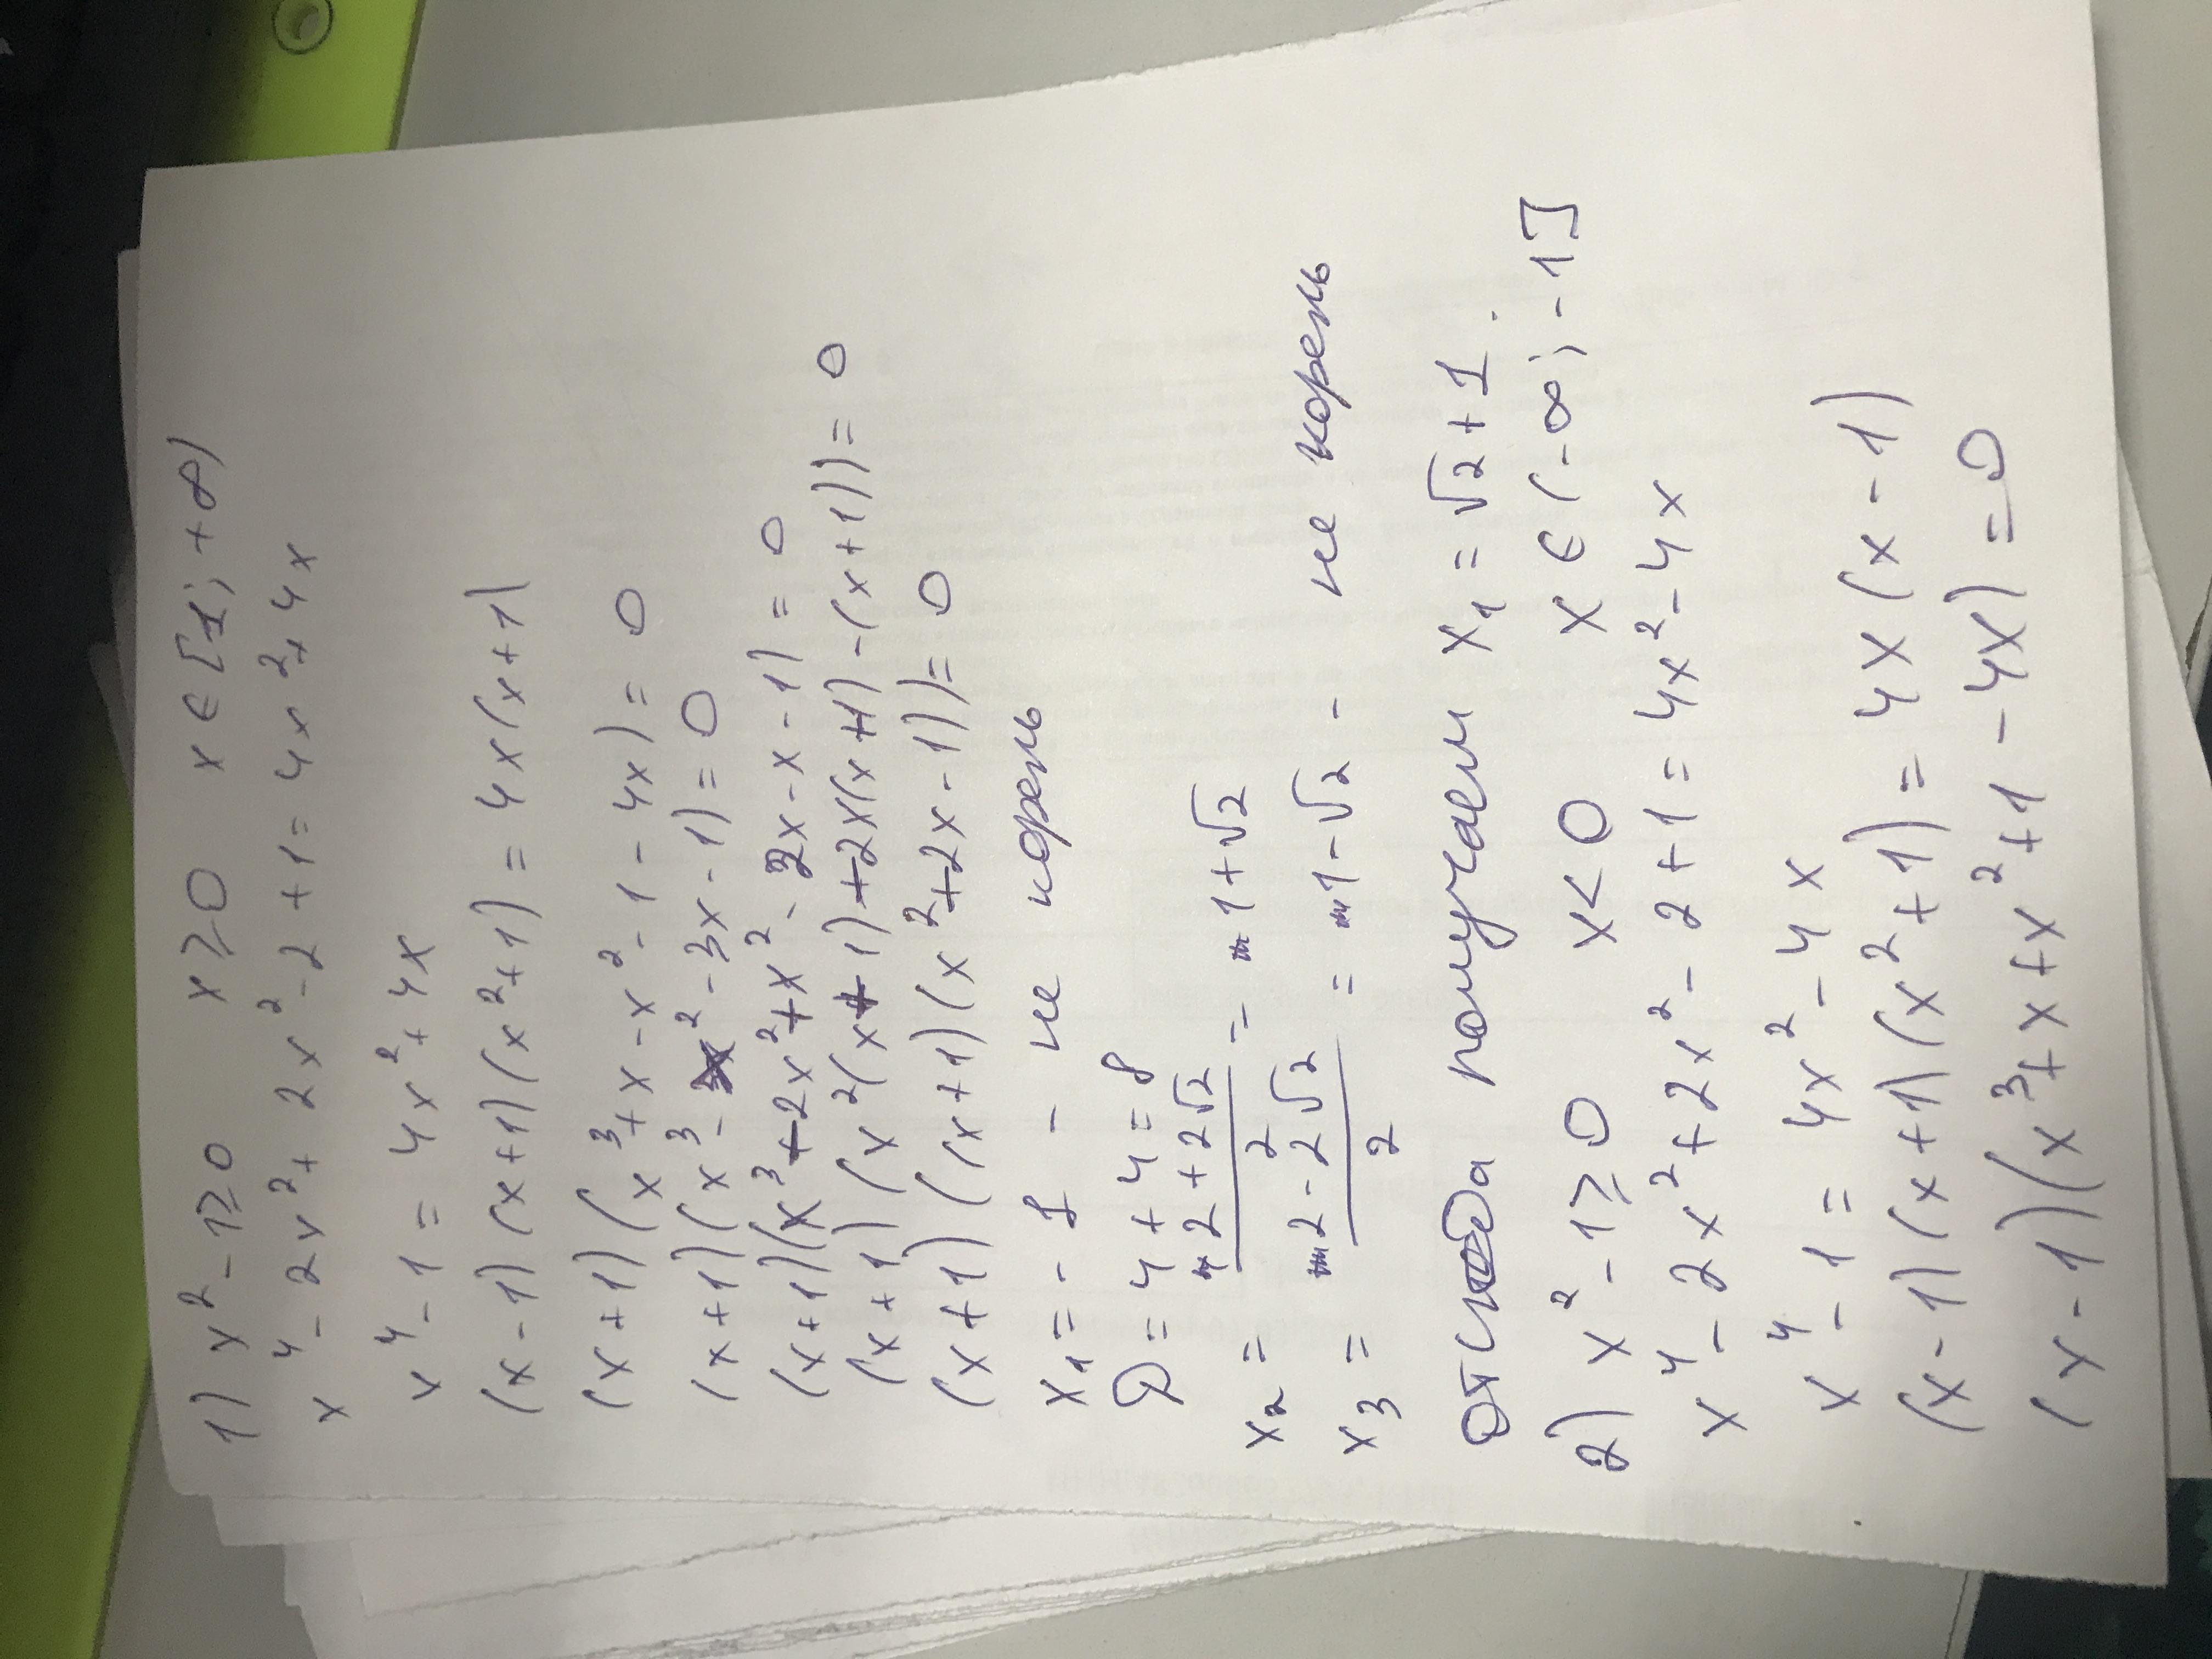 1) x² - 1 ≥ 0 x ≥ 0 x ∈ [1; +∞)
x⁴ - 2x² + 2x² - 2 + 1 = 4x² + 4x
x⁴ - 1 = 4x² + 4x
(x - 1)(x + 1)(x² + 1) = 4x(x + 1)
(x + 1)(x³ + x - x² - 1 - 4x) = 0
(x + 1)(x³ - x² - 3x - 1) = 0
(x + 1)(x³ + 2x² + x² - 2x - x - 1) = 0
(x + 1)(x²(x + 1) + 2x(x + 1) - (x + 1)) = 0
(x + 1)(x + 1)(x² + 2x - 1)) = 0
x₁ = - 1 - не корень
D = 4 + 4 = 8
x₂ = (2 + 2√2)/2 = 1 + √2
x₃ = (2 - 2√2)/2 = 1 - √2 - не корень
отсюда получаем x₁ = √2 + 1.
2) x² - 1 ≥ 0 x < 0 x ∈ (-∞; -1]
x⁴ - 2x² + 2x² - 2 + 1 = 4x² - 4x
x⁴ - 1 = 4x² - 4x
(x - 1)(x + 1)(x² + 1) = 4x(x - 1)
(x - 1)(x³ + x + x² + 1 - 4x) = 0